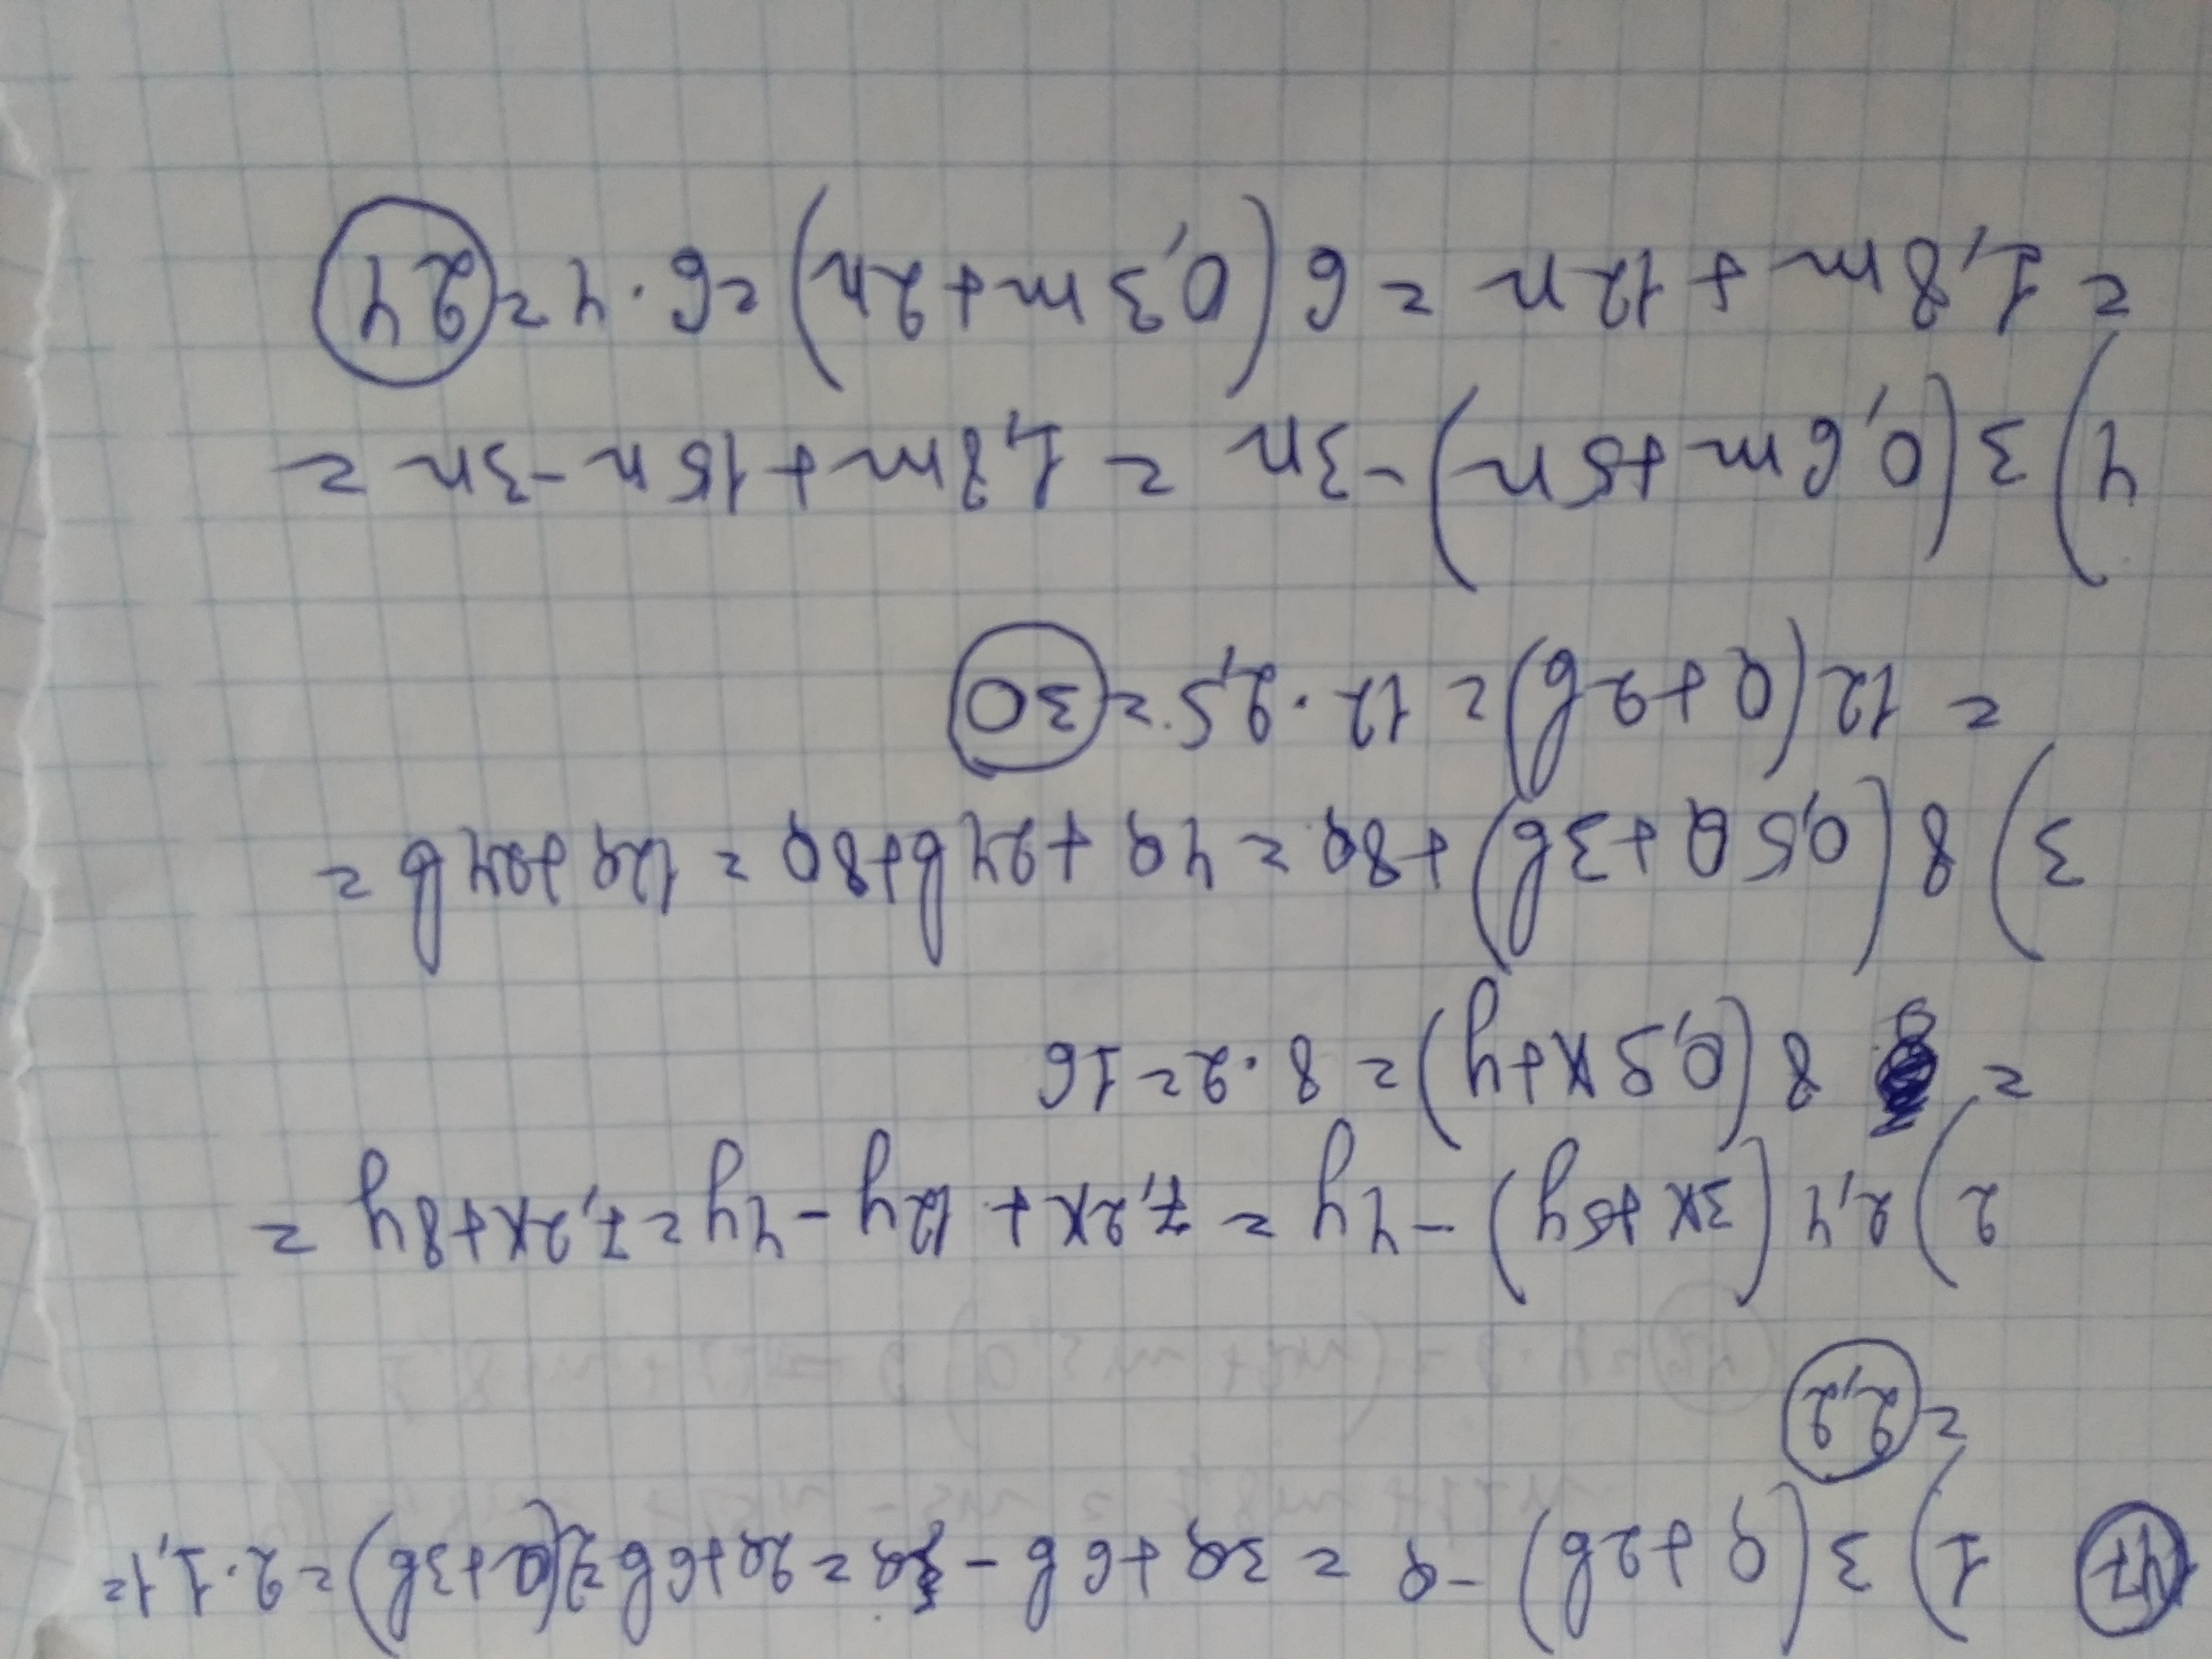 47 1) 3(a+2b)-a = 3a+6b-a=2a+6b=2(a+3b)=2·1,1=
=2,2
2) 2,4(3x+5y)-4y = 7,2x+12y-4y=7,2x+8y=
= 8(0,9x+y)= 8·2=16
3) 8(0,5a+3b)+8a=4a+24b+8a=12a+24b=
=12(a+2b)=12·2,5=30
4) 3(0,6m+5n)-3n = 1,8m+15n-3n=
=1,8m+12n=6(0,3m+2n)=6·4=24